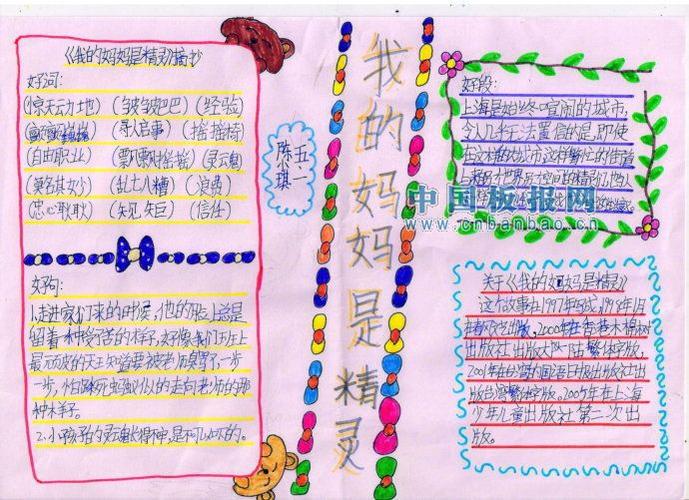 《我的妈妈是精灵》摘抄
好词:
(惊天动地) (皱皱巴巴) (经验)
(寻人启事) (摇摇椅)
(自由职业) (飘飘摇摇) (灵魂)
(莫名其妙) (乱七八糟) (浪费)
(忠心耿耿) (信任)
好句:
1.走进家们来的时候,他的脸上总是
留着一种受苦的样子,好像我们班上
最顽皮的天王知道要被老师臭骂了,一步
一步,怕踩死蚂蚁似的走向老师的那
种样子。
2.小孩子的灵魂长得不牢,是不可以的。
五二
陈琪
我的妈妈是精灵
好段:
上海是始终喧闹的城市,
令人几乎无法置信的是,即使
在这样的城市这样繁忙的街道
中国板报网
www.cnbanbao.cn
关于《我的妈妈是精灵》
这个故事在1997年写成,1998年1月
在春风文艺出版,2000年在香港木棉树
出版社出版大陆繁体字版,
2001年在台湾的国语日报出版社出
版台湾繁体字版。2005年在上海
少年儿童出版社第二次出
版。